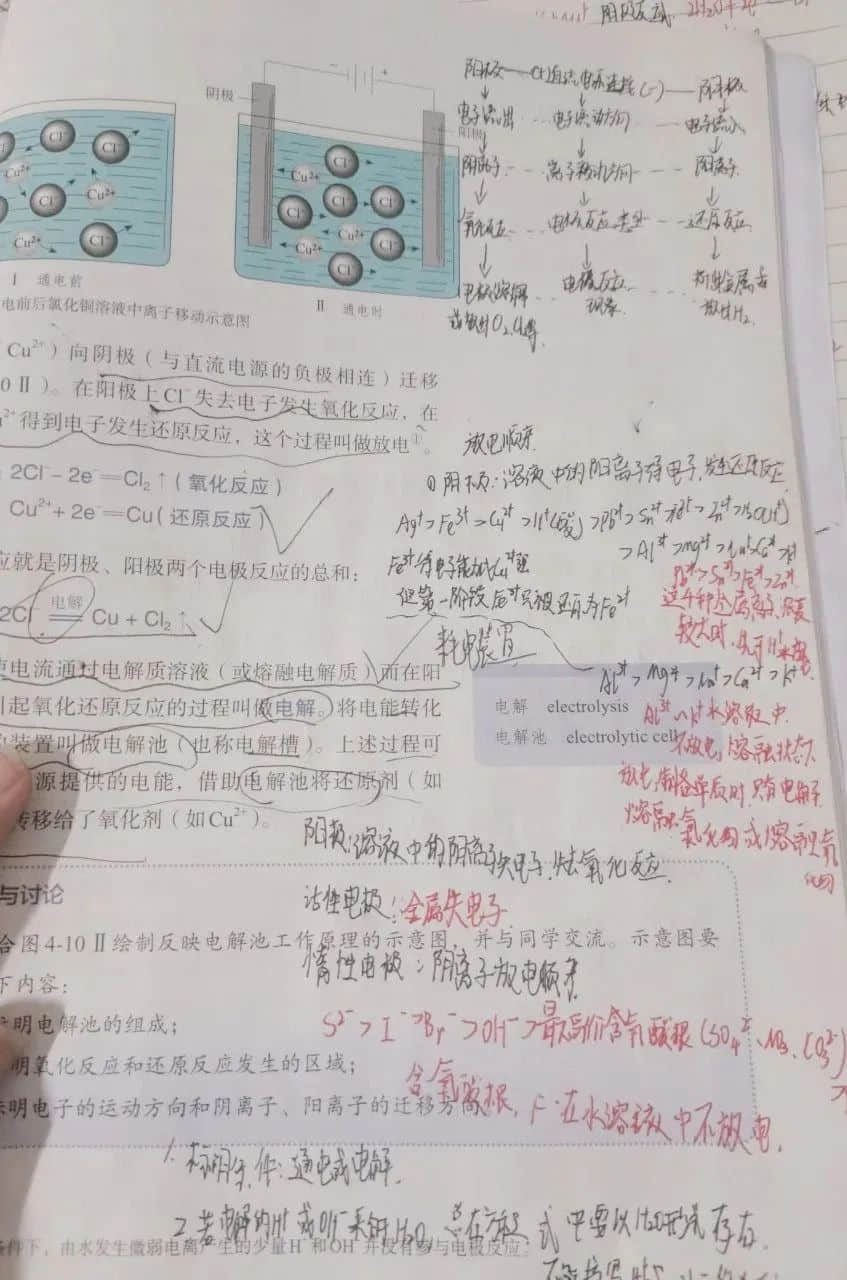 阳极反应
阴极
阳极
Cl⁻
Cl⁻
Cl⁻
Cu²⁺
Cu²⁺
Cl⁻
Cu²⁺
Cl⁻
Cl⁻
Cu²⁺
Cl⁻
Cl⁻
Cl⁻
Cu²⁺
Cu²⁺
Cl⁻
Cl⁻
I 通电前
II 通电时
电前后氯化铜溶液中离子移动示意图
阳极 (+) 直流电源连接 (-) 阴极
电子流出 电子流动方向 电子流入
阴离子 离子移动方向 阳离子
氧化反应 电极反应类型 还原反应
电极溶解 电极反应 析出金属或
或放出O₂、Cl₂等 现象 放出H₂
Cu²⁺）向阴极（与直流电源的负极相连）迁移
0 II）。在阳极上Cl⁻失去电子发生氧化反应，在
得到电子发生还原反应，这个过程叫做放电①。
2Cl⁻ - 2e⁻ = Cl₂↑（氧化反应）
Cu²⁺ + 2e⁻ = Cu（还原反应）
应就是阴极、阳极两个电极反应的总和：
2Cl⁻ 电解 Cu + Cl₂↑
放电顺序
① 阴极：溶液中的阳离子得电子，发生还原反应
Ag⁺>Fe³⁺>Cu²⁺>H⁺(酸)>Pb²⁺>Sn²⁺>Fe²⁺>Zn²⁺>
>Al³⁺>Mg²⁺>Na⁺>Ca²⁺>K⁺
Fe³⁺得电子能力比Cu²⁺强
但第一阶段Fe³⁺只被还原为Fe²⁺
Pb²⁺>Sn²⁺>Fe²⁺>Zn²⁺
耗电装置
Al³⁺>Mg²⁺>Na⁺>Ca²⁺>K⁺
使电流通过电解质溶液（或熔融电解质）而在阳
引起氧化还原反应的过程叫做电解。将电能转化
装置叫做电解池（也称电解槽）。上述过程可
源提供的电能，借助电解池将还原剂（如
转移给了氧化剂（如Cu²⁺）。
电解 electrolysis
电解池 electrolytic cell
Al³⁺~K⁺水溶液中
不放电，熔融状态下
放电，制怪单质时，只有电解
熔融氯化物或熔融氧
化物
阳极：溶液中的阴离子失电子，发生氧化反应
活性电极：金属失电子
惰性电极：阴离子放电顺序
S²⁻>I⁻>Br⁻>OH⁻>最高价含氧酸根(SO₄²⁻、NO₃⁻、CO₃²⁻)
含氧酸根，F⁻在水溶液中不放电
与讨论
合图4-10 II绘制反映电解池工作原理的示意图，并与同学交流。示意图要
下内容：
明电解池的组成；
明氧化反应和还原反应发生的区域；
明电子的运动方向和阴离子、阳离子的迁移方向。
1. 标明条件：通电或电解
2. 若电解的H⁺或OH⁻来自H₂O，总在方程式中要以H₂O形式存在.
条件下，由水发生微弱电离产生的少量H⁺和OH⁻并没有参与电极反应。